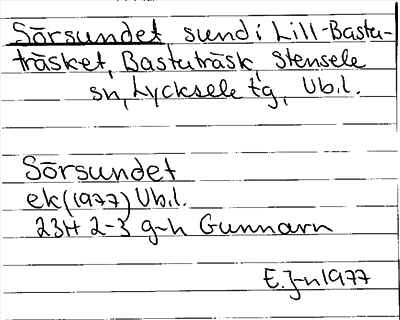 Sörsundet, sund i Lill-Bastu-
träsket, Bastuträsk, Stensele
sn, Lycksele tg, Vb.l.
Sörsundet
ek (1977) Vb.l.
23H 2-3 g-h Gunnarn
E.J-n 1977